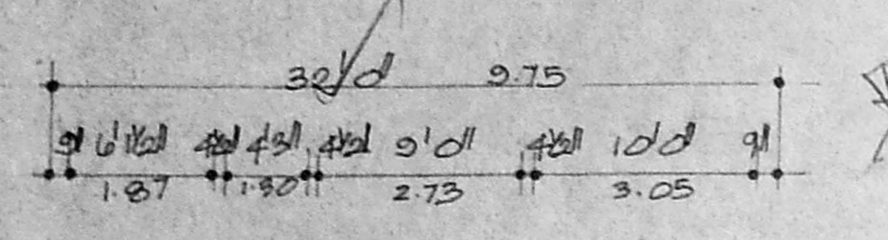 32'0" 9.75
9" 6'1½" 4½" 4'3" 4½" 9'0" 4½" 10'0" 9"
1.87 1.30 2.73 3.05